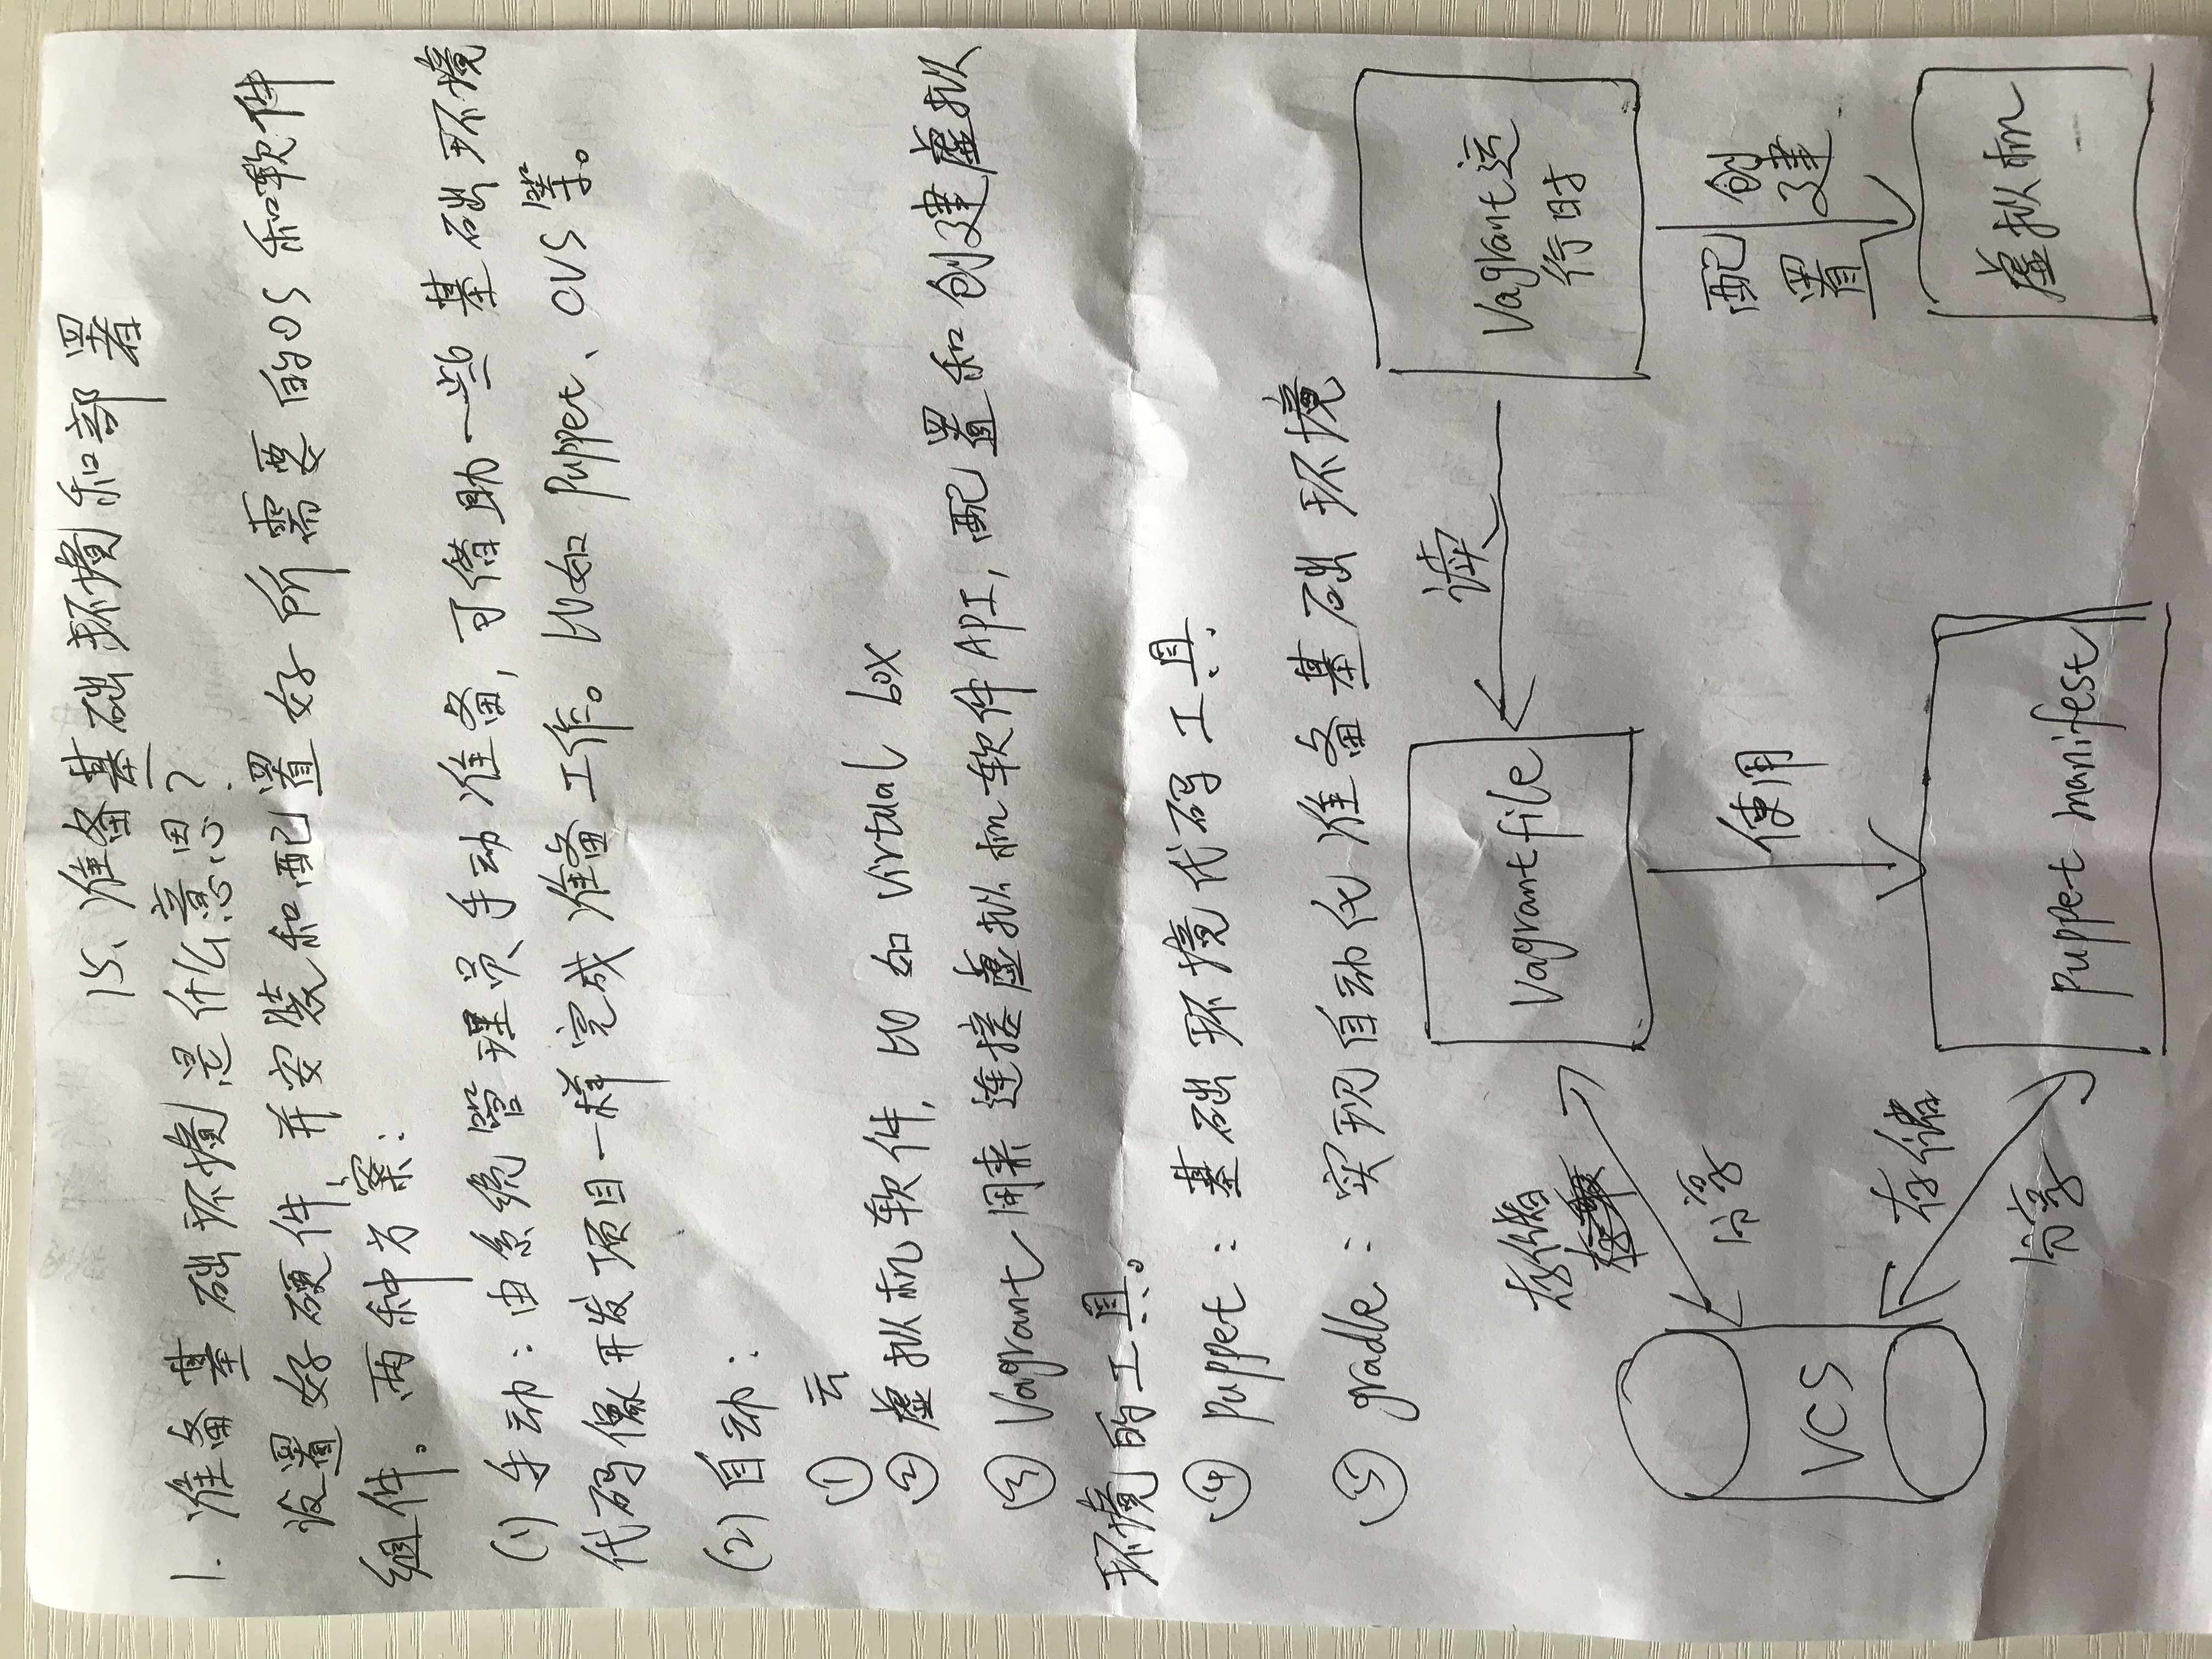 15、准备基础环境和部署
1. 准备基础环境是什么意思?
设置好硬件,并安装和配置好所需要的OS和软件
组件。两种方案:
(1) 手动:由系统管理员手动准备,可借助一些基础环境
代码像开发项目一样完成准备工作。比如puppet、CVS等。
(2) 自动:
① 云
② 虚拟机软件,比如virtual box
③ Vagrant 用来连接虚拟机软件API,配置和创建虚拟
环境的工具。
④ puppet:基础环境代码工具
⑤ gradle:实现自动化准备基础环境
读
Vagrantfile
Vagrant运
行时
存储
分享
使用
配置
创建
VCS
存储
分享
puppet manifest
虚拟机